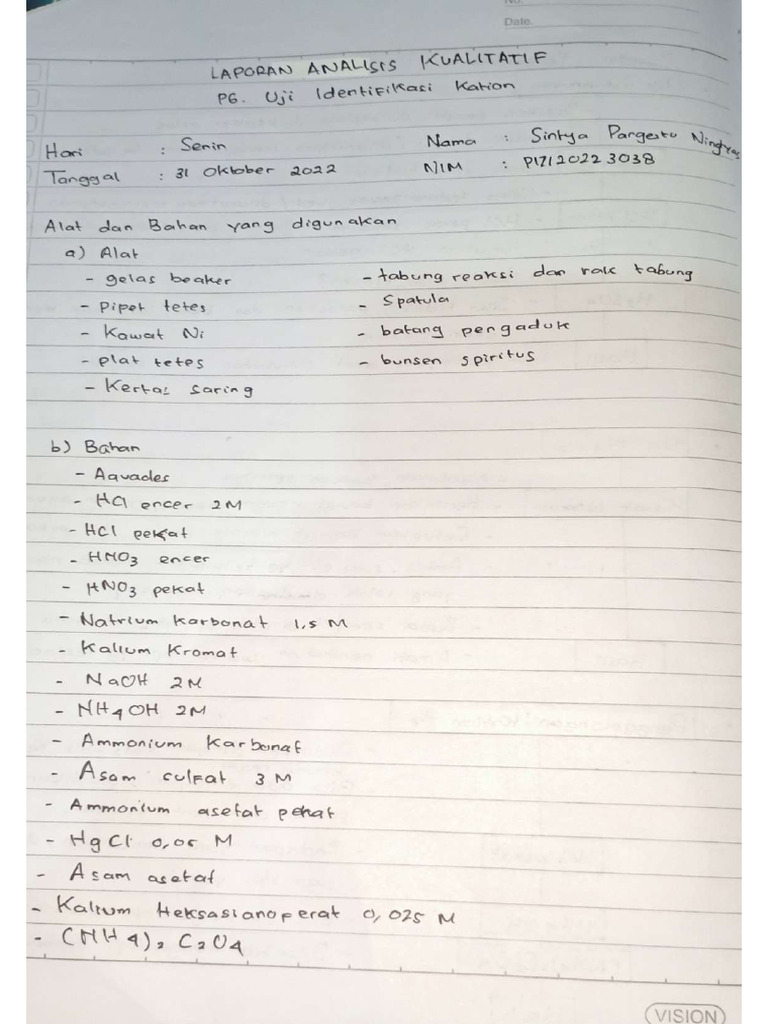 No.
Date.
LAPORAN ANALISIS KUALITATIF
P6. Uji Identifikasi Kation
Hari : Senin
Nama : Sintya Pangestu Ningtyas
Tanggal : 31 Oktober 2022
NIM : P17120223038
Alat dan Bahan yang digunakan
a) Alat
- gelas beaker
- tabung reaksi dan rak tabung
- Pipet tetes
- Spatula
- Kawat Ni
- batang pengaduk
- plat tetes
- bunsen spiritus
- Kertas saring
b) Bahan
- Aquades
- HCl encer 2M
- HCl pekat
- HNO3 encer
- HNO3 pekat
- Natrium Karbonat 1,5 M
- Kalium Kromat
- NaOH 2M
- NH4OH 2M
- Ammonium Karbonat
- Asam sulfat 3 M
- Ammonium asetat pekat
- HgCl 0,05 M
- Asam asetat
- Kalium Heksasianoperat 0,025 M
- (NH4)2 C2O4
VISION